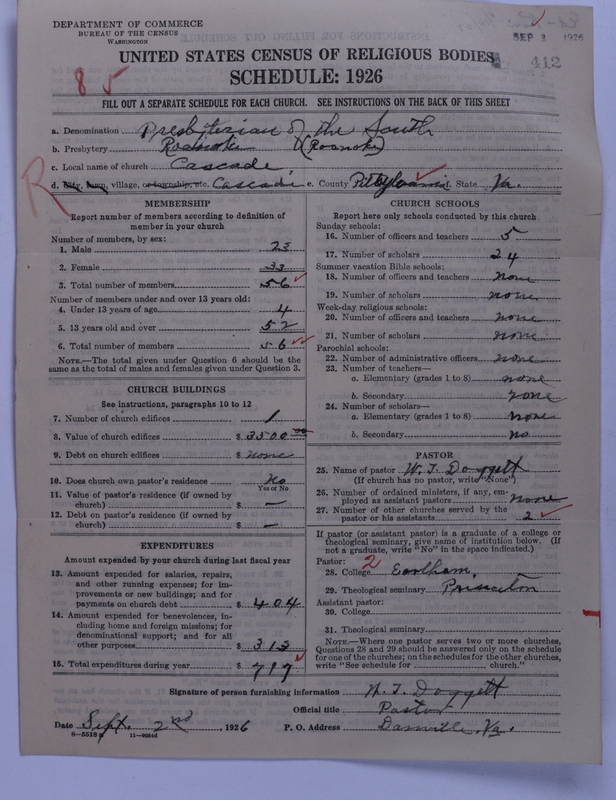 DEPARTMENT OF COMMERCE
BUREAU OF THE CENSUS
WASHINGTON
SEP 3 1926
412
UNITED STATES CENSUS OF RELIGIOUS BODIES
SCHEDULE: 1926
8 5
FILL OUT A SEPARATE SCHEDULE FOR EACH CHURCH. SEE INSTRUCTIONS ON THE BACK OF THIS SHEET
a. Denomination Presbyterian of the South
b. Presbytery Roanoke (Roanoke)
c. Local name of church Cascade
R
d. City, town, village, or township, etc. Cascade e. County Pittsylvania, State Va.
MEMBERSHIP
Report number of members according to definition of member in your church
Number of members, by sex:
1. Male 23
2. Female 33
3. Total number of members 56
Number of members under and over 13 years old:
4. Under 13 years of age 4
5. 13 years old and over 52
6. Total number of members 56
NOTE.—The total given under Question 6 should be the same as the total of males and females given under Question 3.
CHURCH BUILDINGS
See instructions, paragraphs 10 to 12
7. Number of church edifices 1
8. Value of church edifices $ 3500 00
9. Debt on church edifices $ none
10. Does church own pastor's residence No
Yes or No
11. Value of pastor's residence (if owned by church) $ —
12. Debt on pastor's residence (if owned by church) $ —
EXPENDITURES
Amount expended by your church during last fiscal year
13. Amount expended for salaries, repairs, and other running expenses; for improvements or new buildings; and for payments on church debt $ 404
14. Amount expended for benevolences, including home and foreign missions; for denominational support; and for all other purposes $ 313
15. Total expenditures during year $ 717
CHURCH SCHOOLS
Report here only schools conducted by this church
Sunday schools:
16. Number of officers and teachers 5
17. Number of scholars 24
Summer vacation Bible schools:
18. Number of officers and teachers none
19. Number of scholars none
Week-day religious schools:
20. Number of officers and teachers none
21. Number of scholars none
Parochial schools:
22. Number of administrative officers none
23. Number of teachers—
a. Elementary (grades 1 to 8) none
b. Secondary none
24. Number of scholars—
a. Elementary (grades 1 to 8) none
b. Secondary no
PASTOR
25. Name of pastor W. T. Doggett
(If church has no pastor, write "None")
26. Number of ordained ministers, if any, employed as assistant pastors none
27. Number of other churches served by the pastor or his assistants 2
If pastor (or assistant pastor) is a graduate of a college or theological seminary, give name of institution below. (If not a graduate, write "No" in the space indicated.)
Pastor: 2
28. College Earlham
29. Theological seminary Princeton
Assistant pastor:
30. College
31. Theological seminary
NOTE.—Where one pastor serves two or more churches, Questions 28 and 29 should be answered only on the schedule for one of the churches; on the schedules for the other churches, write "See schedule for church."
Signature of person furnishing information W. T. Doggett
Official title Pastor
Date Sept. 2nd, 1926 P. O. Address Danville, Va.